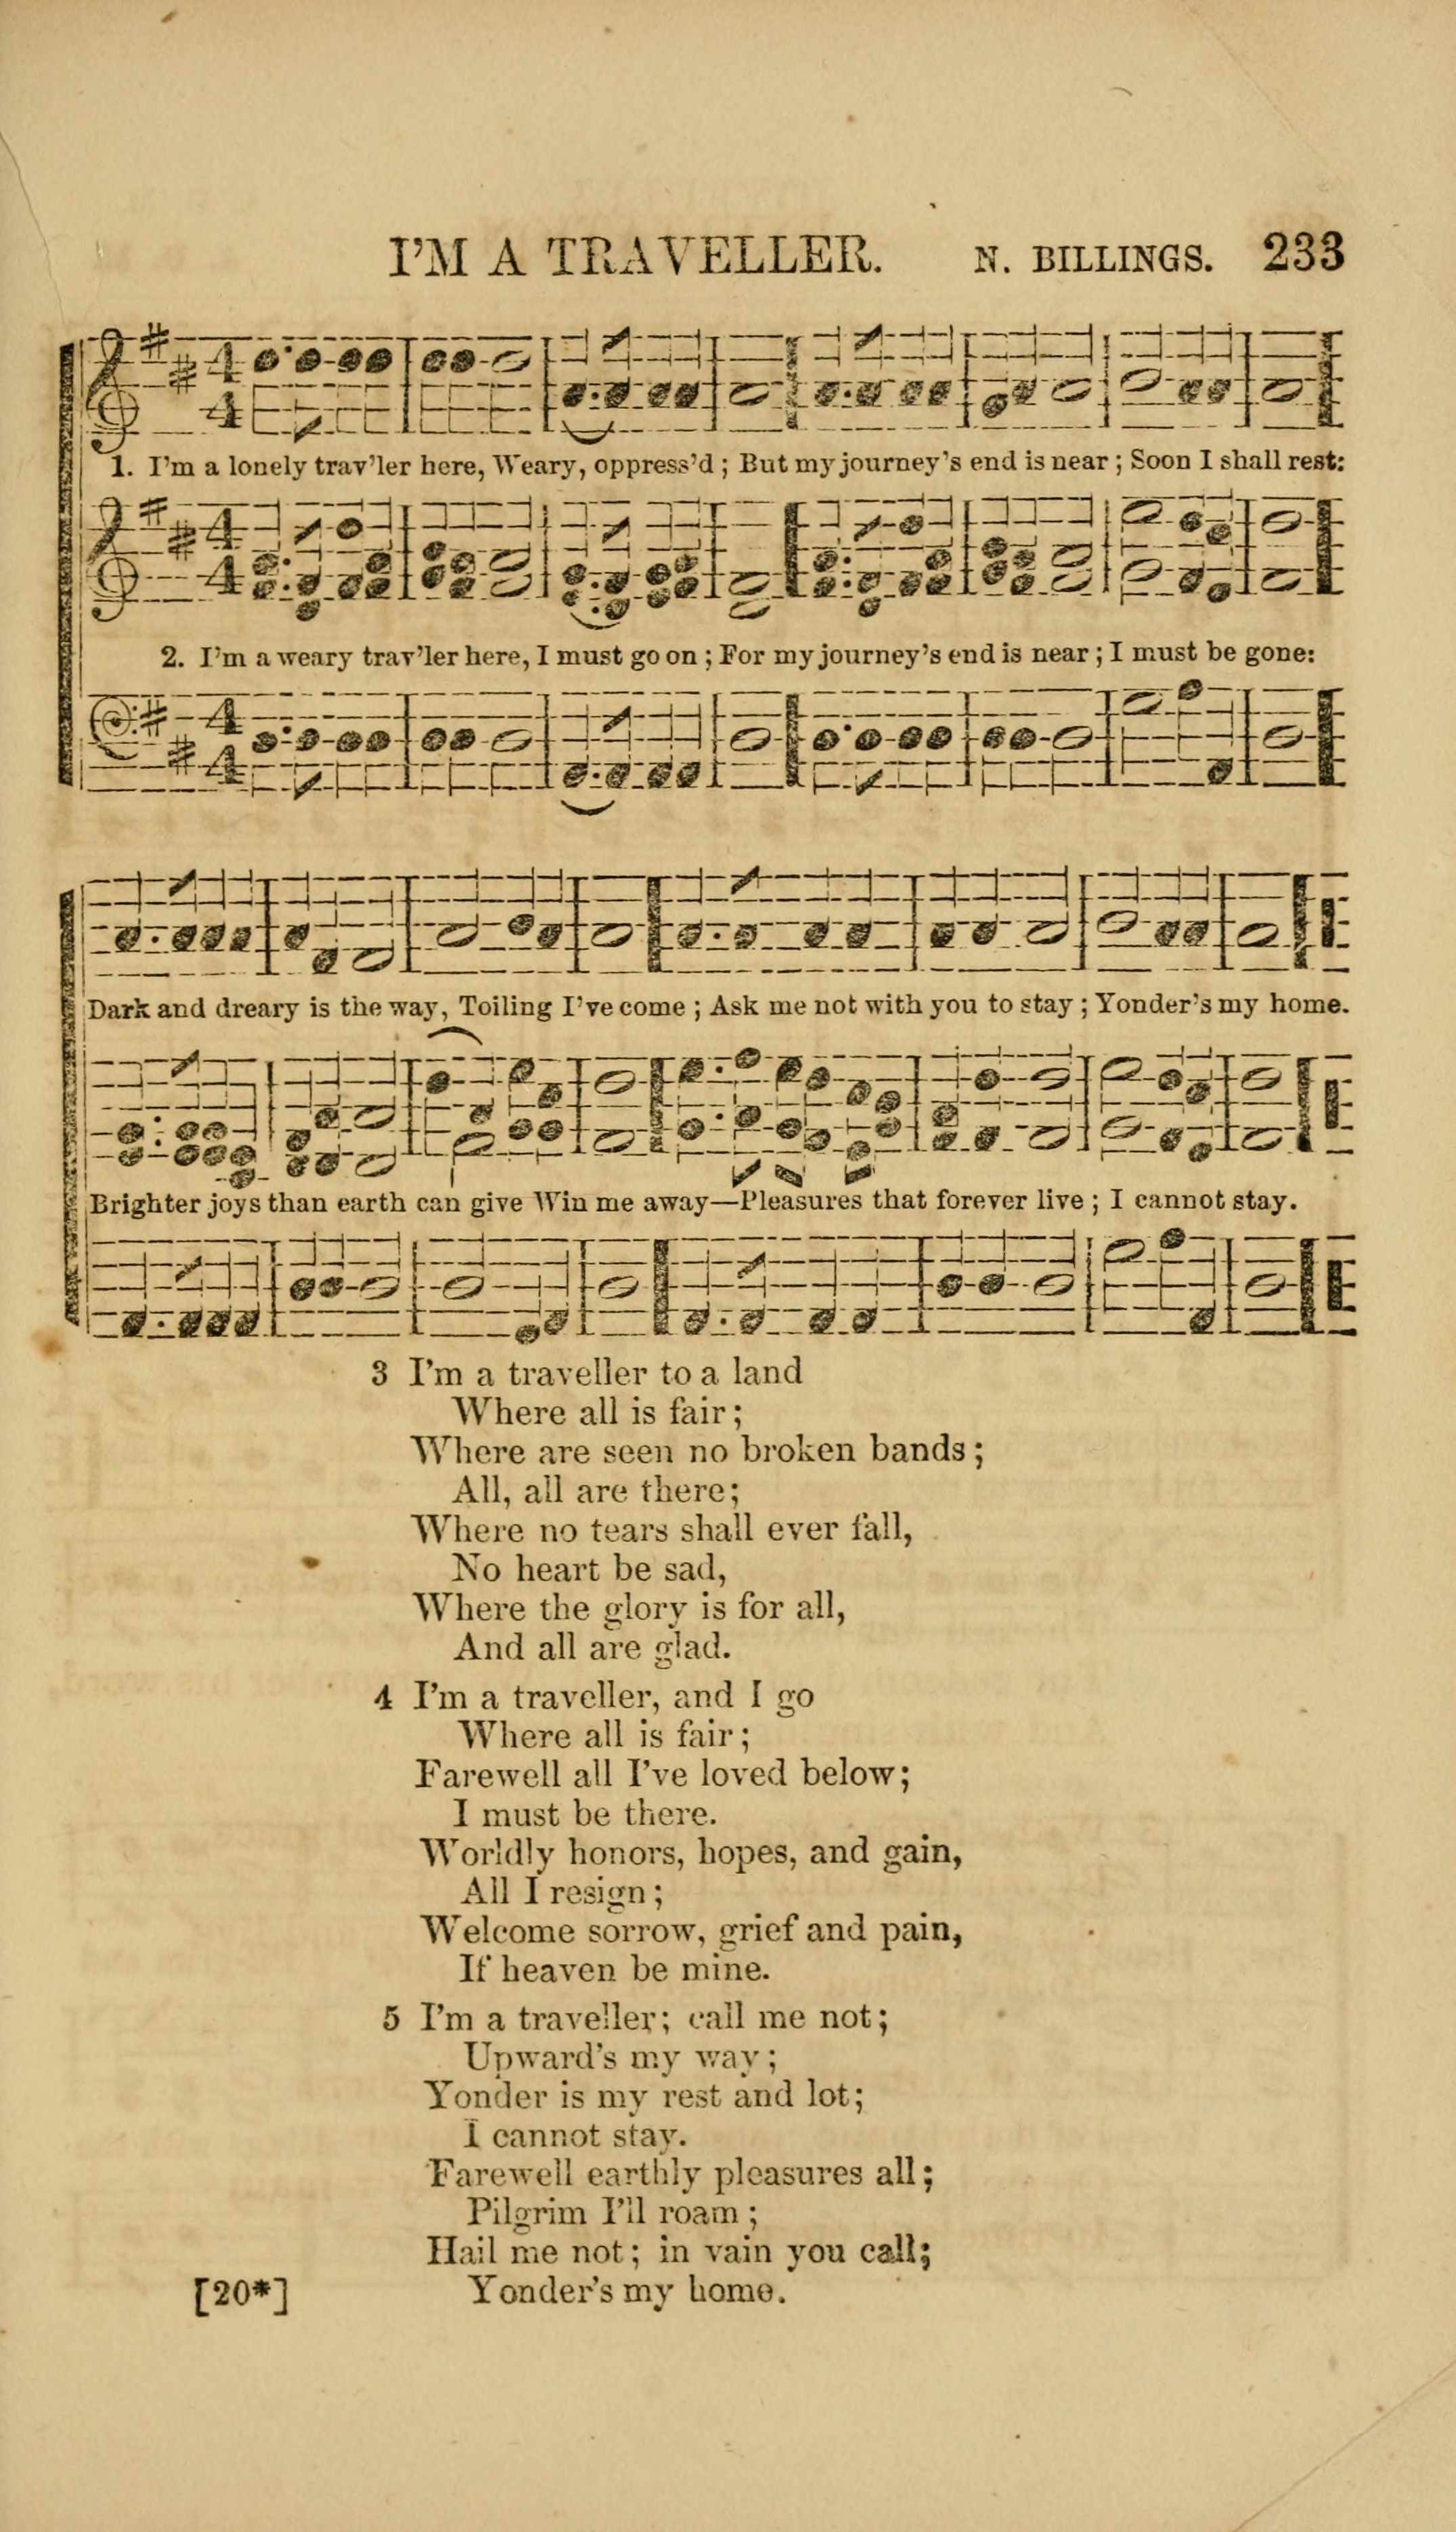 I'M A TRAVELLER. N. BILLINGS. 233
1. I'm a lonely trav'ler here, Weary, oppress'd ; But my journey's end is near ; Soon I shall rest:
2. I'm a weary trav'ler here, I must go on ; For my journey's end is near ; I must be gone:
Dark and dreary is the way, Toiling I've come ; Ask me not with you to stay ; Yonder's my home.
Brighter joys than earth can give Win me away—Pleasures that forever live ; I cannot stay.
3 I'm a traveller to a land
Where all is fair;
Where are seen no broken bands;
All, all are there;
Where no tears shall ever fall,
No heart be sad,
Where the glory is for all,
And all are glad.
4 I'm a traveller, and I go
Where all is fair;
Farewell all I've loved below;
I must be there.
Worldly honors, hopes, and gain,
All I resign;
Welcome sorrow, grief and pain,
If heaven be mine.
5 I'm a traveller; call me not;
Upward's my way;
Yonder is my rest and lot;
I cannot stay.
Farewell earthly pleasures all;
Pilgrim I'll roam;
Hail me not; in vain you call;
[20*] Yonder's my home.